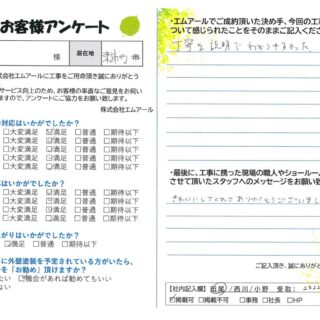 お客様アンケート
様
居在地
市
株式会社エムアールに工事をご用命頂き誠にありがとう
サービス向上のため、お客様の率直なご意見をお伺い
ますので、アンケートにご協力をお願い致します。
株式会社エムアール
対応はいかがでしたか?
□大変満足 ☑満足 □普通 □期待以下
□大変満足 ☑満足 □普通 □期待以下
□大変満足 ☑満足 □普通 □期待以下
□大変満足 ☑満足 □普通 □期待以下
はいかがでしたか?
□大変満足 ☑満足 □普通 □期待以下
□大変満足 ☑満足 □普通 □期待以下
□大変満足 ☑満足 □普通 □期待以下
がりはいかがでしたか?
足 ☑満足 □普通 □期待以下
に外壁塗装を予定されている方がいたら、
を「お勧め」頂けますか?
たい ☑機会があれば勧めてもいい
ない
・エムアールでご成約頂いた決め手、今回の工
ついて感じられたことをそのままご記入くださ
丁寧な説明でわかりやすかった
・最後に、工事に携った現場の職人やショールー
させて頂いたスタッフへのメッセージをお願い致
きれいにしてくれてありがとうございまし
ご記入頂き、誠にありが
【社内記入欄】担尾/西川/小野 受取:
☑掲載可 □掲載不可 □事務 □社長 □HP